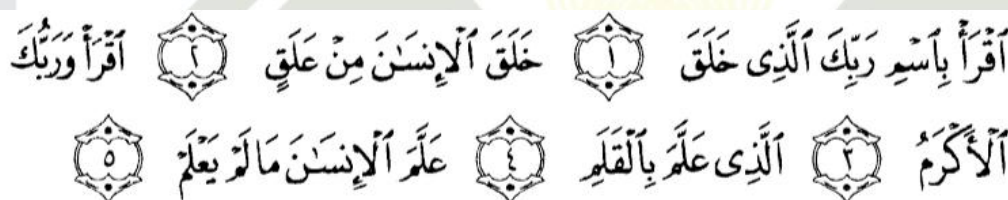 ٱقْرَأْ بِٱسْمِ رَبِّكَ ٱلَّذِى خَلَقَ ١ خَلَقَ ٱلْإِنسَـٰنَ مِنْ عَلَقٍ ٢ ٱقْرَأْ وَرَبُّكَ
ٱلْأَكْرَمُ ٣ ٱلَّذِى عَلَّمَ بِٱلْقَلَمِ ٤ عَلَّمَ ٱلْإِنسَـٰنَ مَا لَمْ يَعْلَمْ ٥